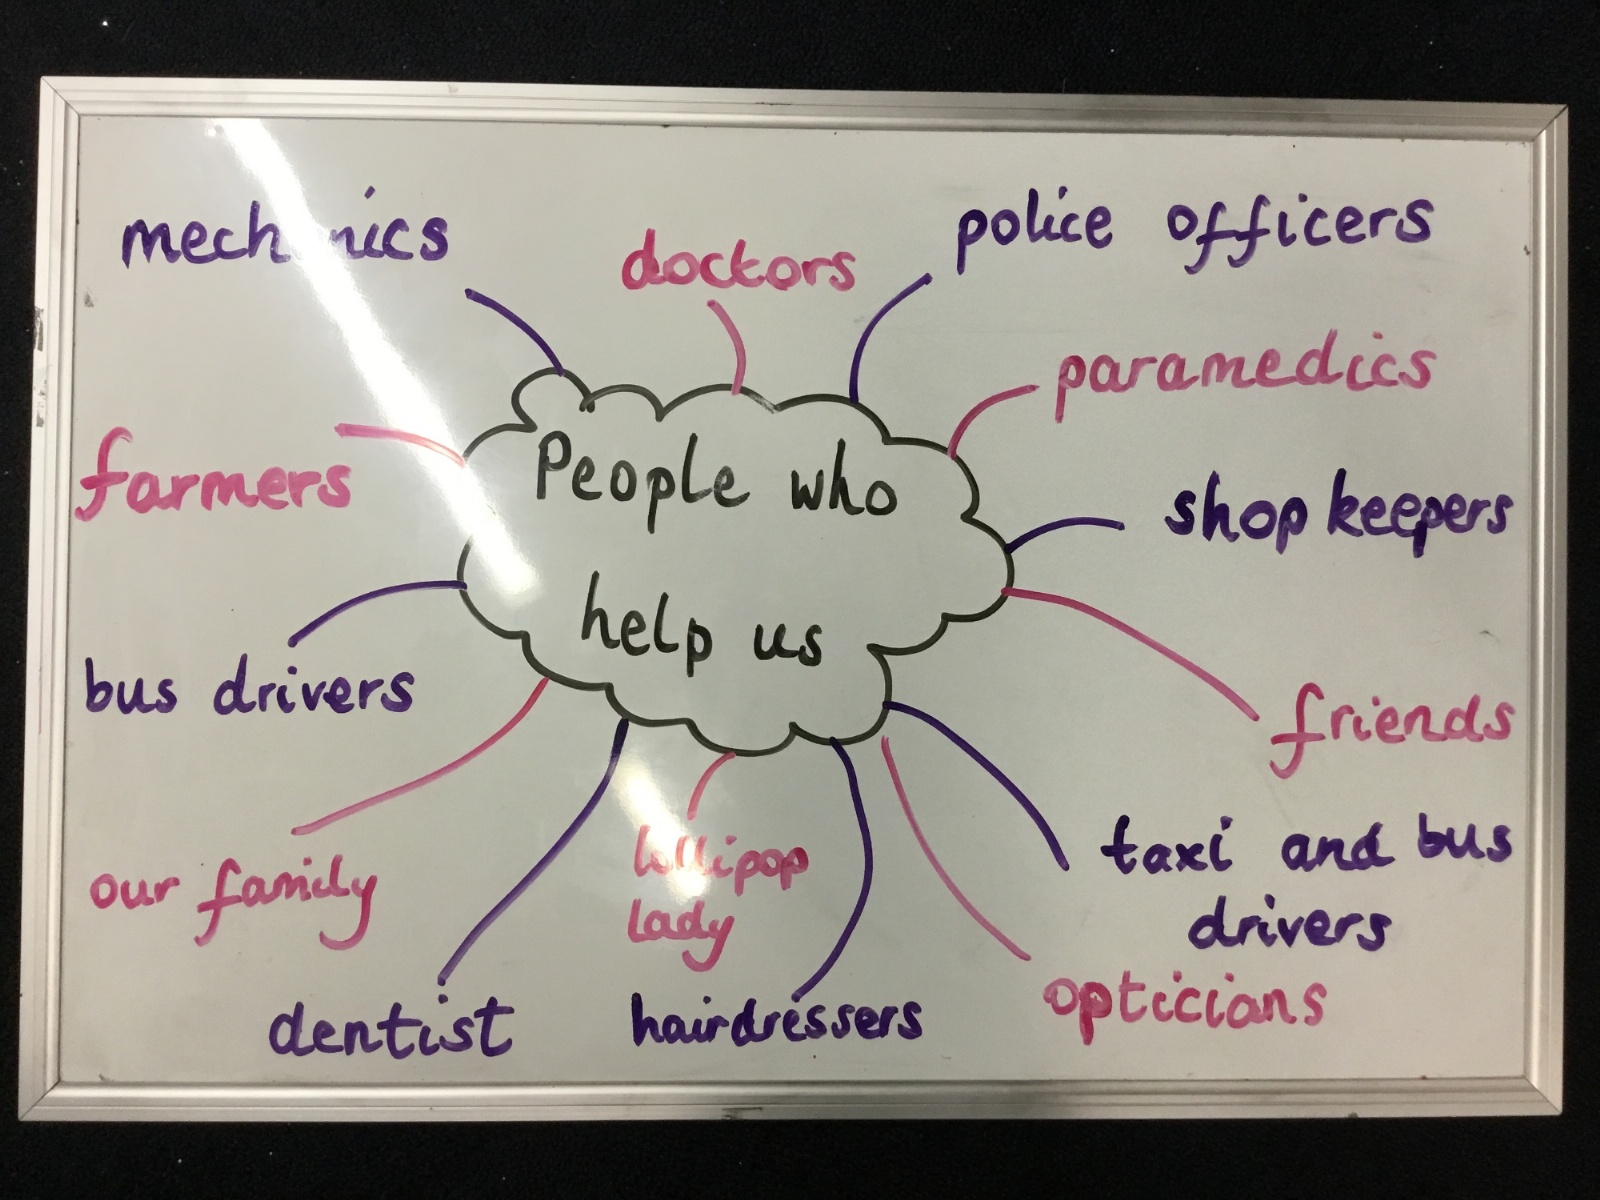 mechanics
doctors
police officers
paramedics
farmers
People who
help us
shop keepers
bus drivers
friends
our family
lollipop
lady
taxi and bus
drivers
dentist
hairdressers
opticians